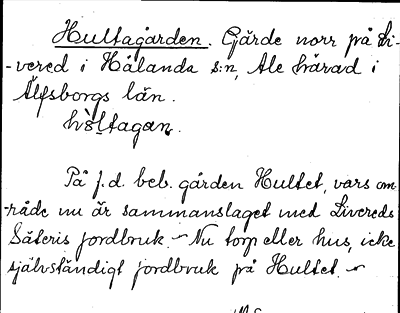 Hultagärden. Gärde norr på Li-
-vered i Hålanda s:n, Ale härad i
Älfsborgs län.
hùltagan.
På f.d. beb. gården Hultet, vars om-
-råde nu är sammanslaget med Livereds
Säteris jordbruk. - Nu torp eller hus, icke
självständigt jordbruk på Hultet. -